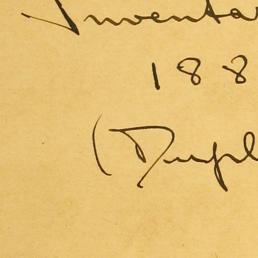 Inventa
188
(Dupl